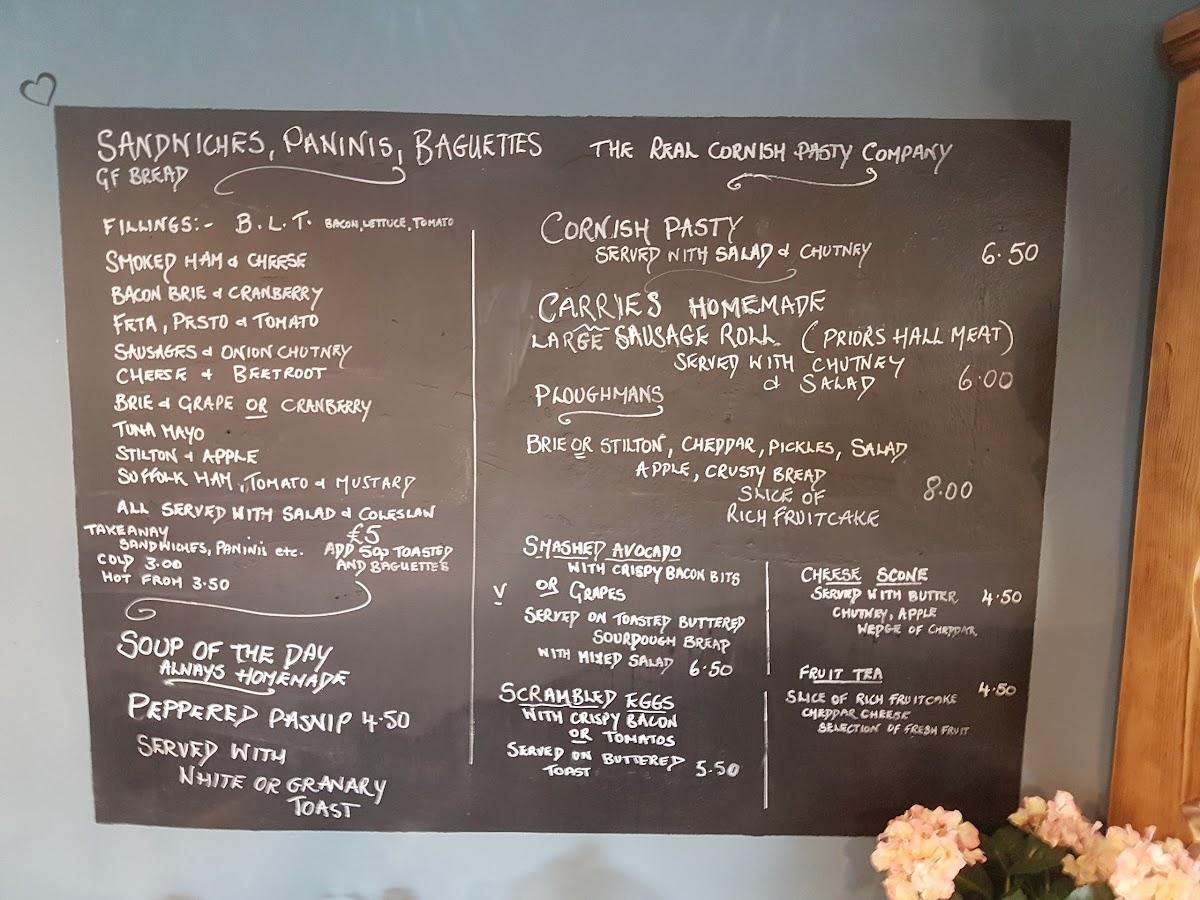 SANDWICHES, PANINIS, BAGUETTES
GF BREAD
FILLINGS:- B.L.T. BACON, LETTUCE, TOMATO
SMOKED HAM & CHEESE
BACON BRIE & CRANBERRY
FETA, PESTO & TOMATO
SAUSAGES & ONION CHUTNEY
CHEESE & BEETROOT
BRIE & GRAPE OR CRANBERRY
TUNA MAYO
STILTON & APPLE
SUFFOLK HAM, TOMATO & MUSTARD
ALL SERVED WITH SALAD & COLESLAW
£5
ADD 50p TOASTED
AND BAGUETTES
TAKEAWAY
SANDWICHES, PANINIS etc.
COLD 3.00
HOT FROM 3.50
SOUP OF THE DAY
ALWAYS HOMEMADE
PEPPERED PASNIP 4.50
SERVED WITH
WHITE OR GRANARY
TOAST
THE REAL CORNISH PASTY COMPANY
CORNISH PASTY
SERVED WITH SALAD & CHUTNEY 6.50
CARRIES HOMEMADE
LARGE SAUSAGE ROLL (PRIORS HALL MEAT)
SERVED WITH CHUTNEY
& SALAD 6.00
PLOUGHMANS
BRIE OR STILTON, CHEDDAR, PICKLES, SALAD
APPLE, CRUSTY BREAD
SLICE OF 8.00
RICH FRUITCAKE
SMASHED AVOCADO
WITH CRISPY BACON BITS
V OR GRAPES
SERVED ON TOASTED BUTTERED
SOURDOUGH BREAD
WITH MIXED SALAD 6.50
SCRAMBLED EGGS
WITH CRISPY BACON
OR TOMATOS
SERVED ON BUTTERED
TOAST 5.50
CHEESE SCONE
SERVED WITH BUTTER 4.50
CHUTNEY, APPLE
WEDGE OF CHEDDAR
FRUIT TEA
SLICE OF RICH FRUITCAKE 4.50
CHEDDAR CHEESE
SELECTION OF FRESH FRUIT